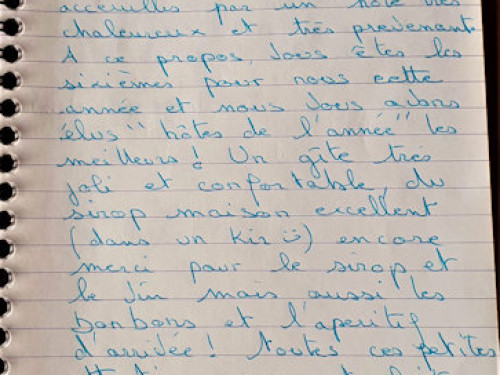 accueillis par un hôte très
chaleureux et très prévenant.
A ce propos, vous êtes les
sixièmes pour nous cette
année et nous vous avons
élus "hôtes de l'année" les
meilleurs! Un gîte très
joli et confortable, du
sirop maison excellent
(dans un Kir ☺) encore
merci pour le sirop et
le vin mais aussi les
bonbons et l'apéritif
d'arrivée! Toutes ces petites